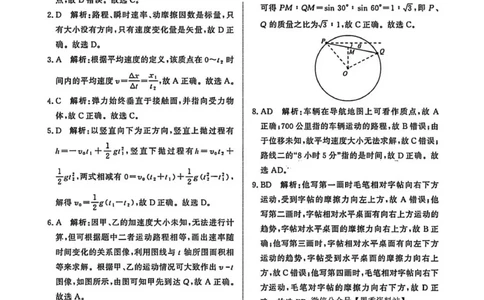 2. D 解析:路程、瞬时速率、动摩擦因数是标量,只
有大小没有方向,只有速度变化量是矢量,故 D 正
确。故选 D。
3. A 解析:根据平均速度的定义,该质点在 0~t₂ 时
间内的平均速度 v=Δx/Δt=x₁/t₂,故 A 正确。故选 A。
4. C 解析:弹力始终垂直于接触面,并指向受力物
体,故 C 正确。故选 C。
5. D 解析:以竖直向下为正方向,竖直上抛过程有
h=-v₀t₁+1/2gt₁²,竖直下抛过程有 h=v₀t₂+
1/2gt₂²,两式相减有 0=v₀(t₂+t₁)+1/2g(t₂²-t₁²),
解得 v₀=1/2g(t₁-t₂),故 D 正确。故选 D。
6. A 解析:因甲、乙的加速度大小未知,无法进行计
算,但可根据题中二者运动路程相等,画出速率随
时间变化的关系图像,利用图线与 t 轴所围面积相
等来求解。根据甲、乙的运动情况可大致作出 v-t
图像,如图所示,由图可知甲先到达 Q,故 A 正确。
故选 A。
可得 PM∶QM=sin 30°∶sin 60°=1∶√3,即 P、
Q 的质量之比为√3∶1,故 C 正确。故选 C。
P
θ
M
Q
O
8. AD 解析:车辆在导航地图上可看作质点,故 A
正确;700 公里指的车辆运动的路程,故 B 错误;由
于位移未知,故平均速度大小无法求解,故 C 错误;
路线二的“8 小时 5 分”指的是时间,故 D 正确。故
选 AD。
9. BD 解析:他写第一画时毛笔相对字帖向右下方
运动,受到字帖的摩擦力向左上方,故 A 错误;他
写第二画时,字帖相对水平桌面有向右上方运动的
趋势,字帖对水平桌面的摩擦力向右上方,故 B 正
确;他写第三画时,字帖相对水平桌面有向左下方
运动的趋势,字帖受到水平桌面的摩擦力向右上
方,故 C 错误;他写第四画时,毛笔相对字帖向右下
方运动,毛笔对字帖的摩擦力向右下方,故 D 正